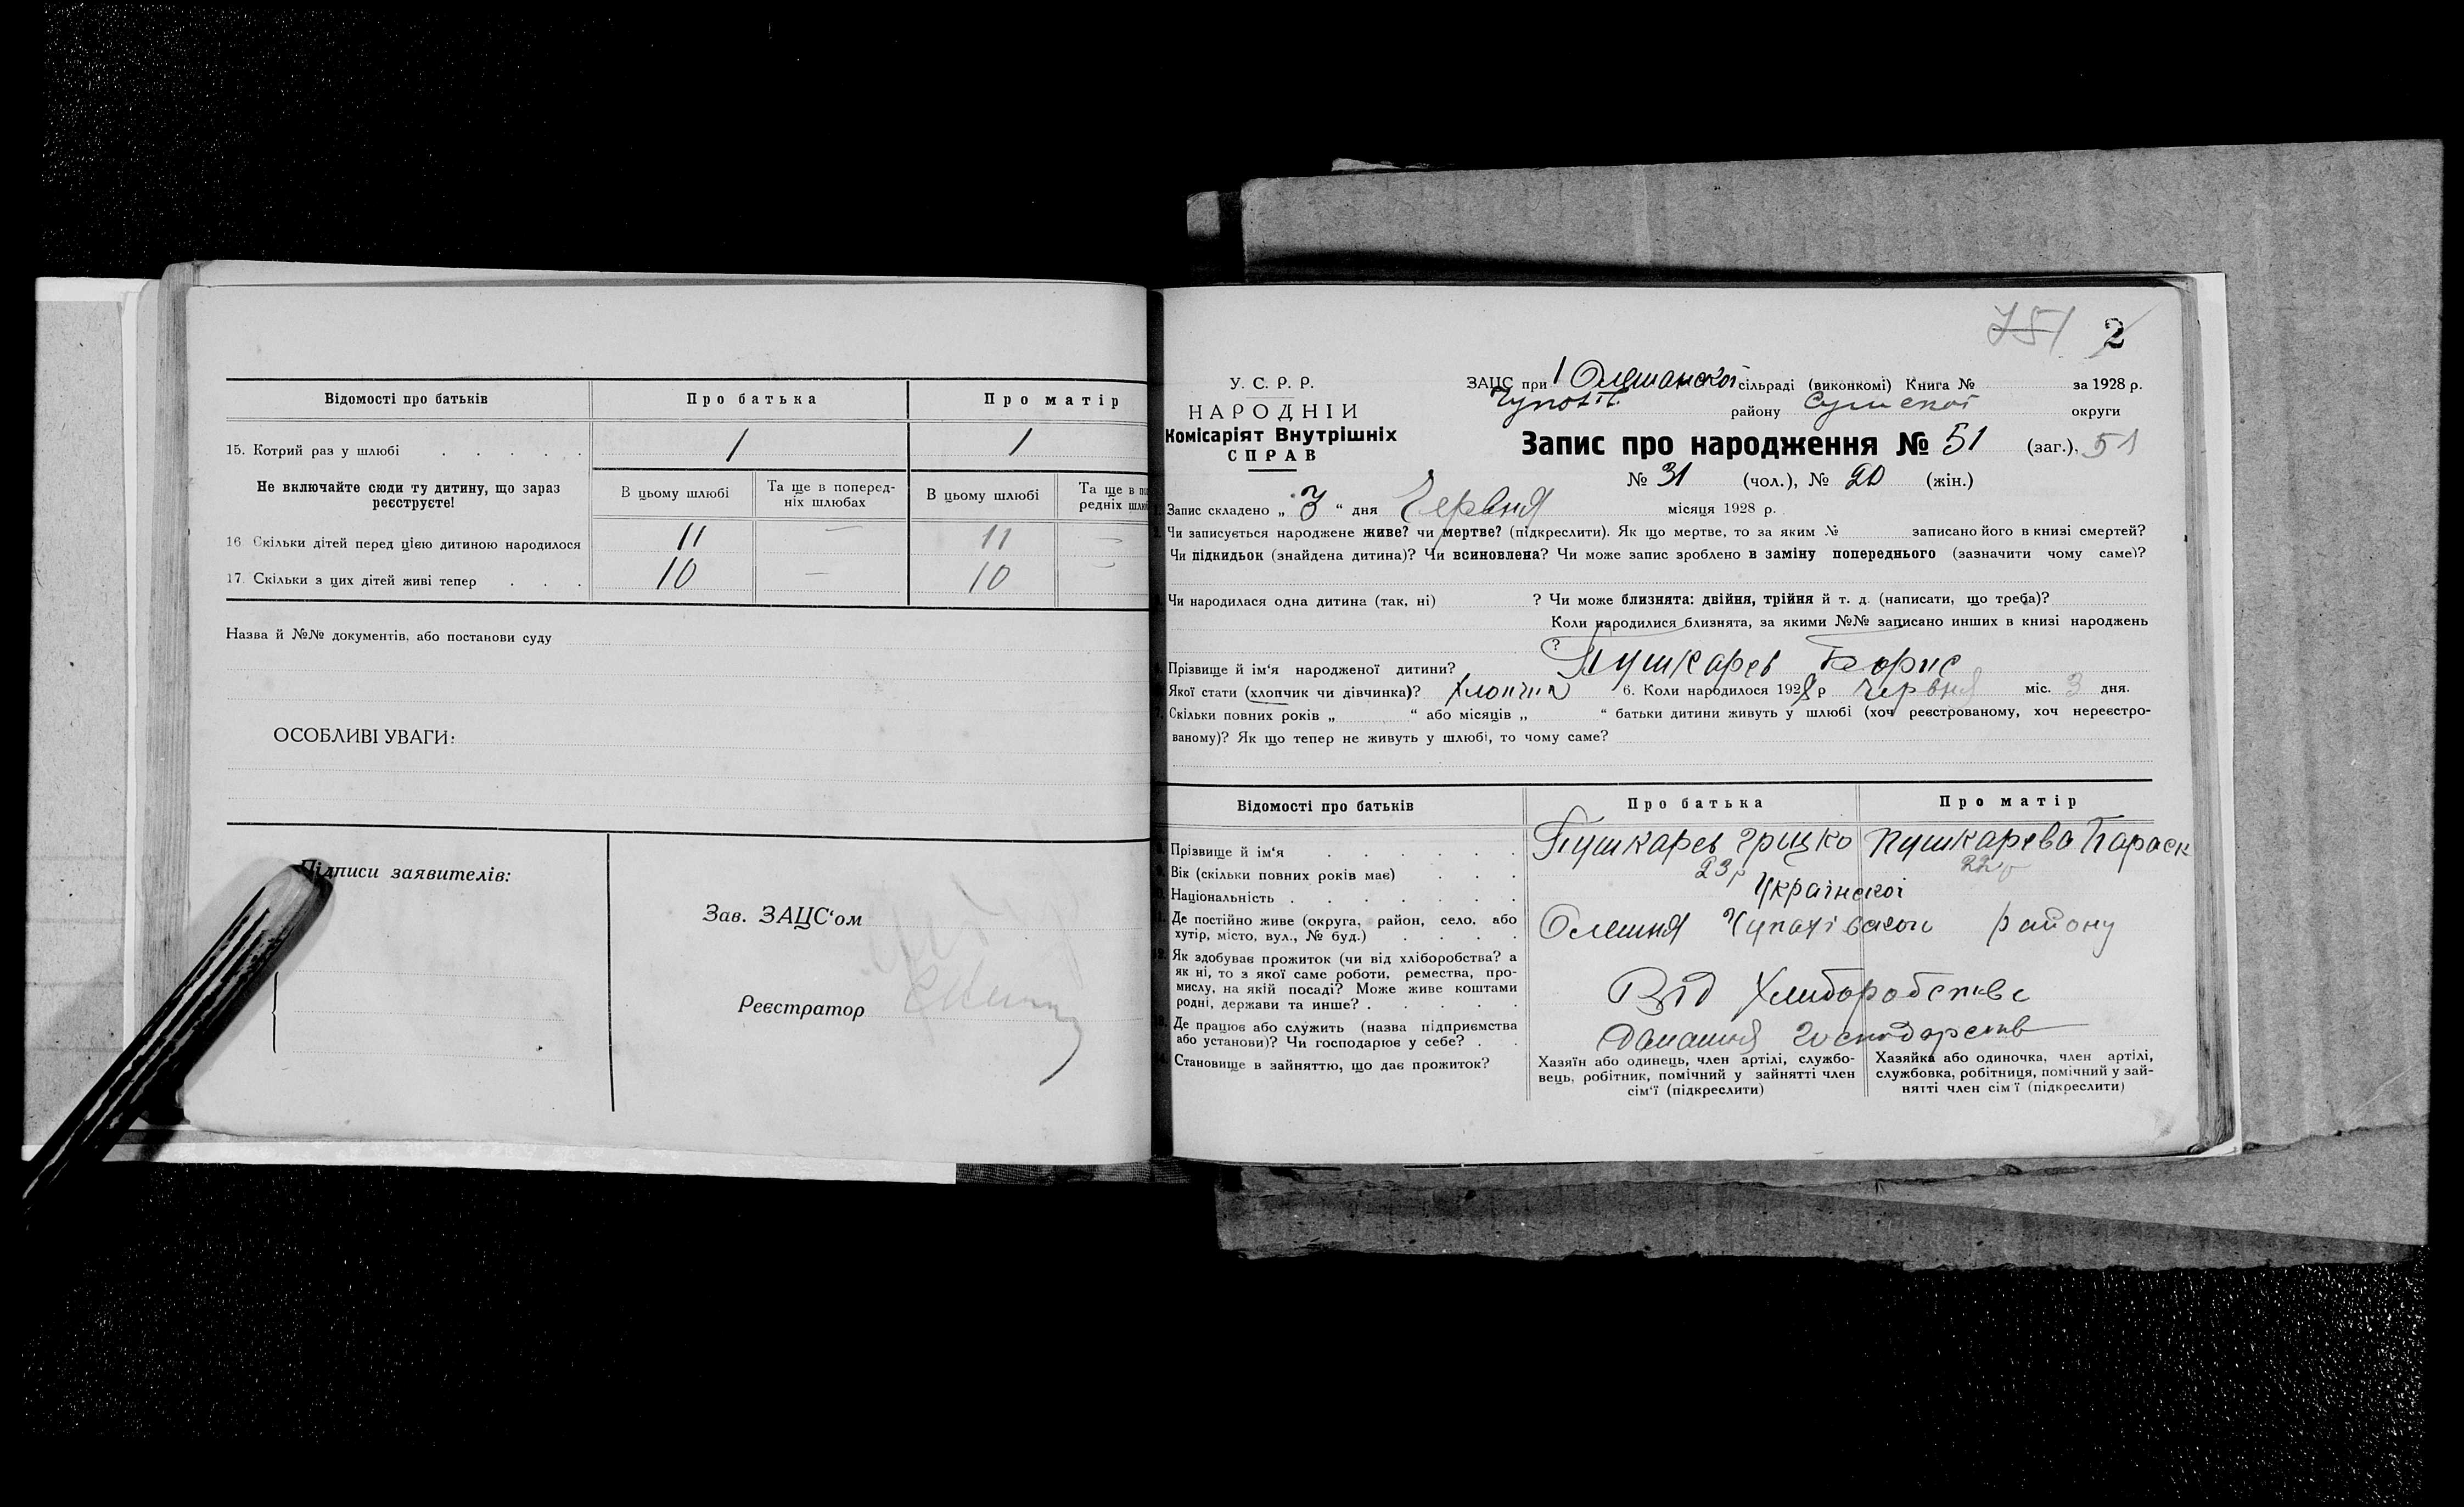 Відомості про батьків
Про батька
Про матір
15. Котрий раз у шлюбі
1
1
Не включайте сюди ту дитину, що зараз реєструєте!
В цьому шлюбі
Та ще в поперед-
ніх шлюбах
В цьому шлюбі
Та ще в по
редніх шлю
16. Скільки дітей перед цією дитиною народилося
11
—
11
—
17. Скільки з цих дітей живі тепер
10
—
10
—
Назва й №№ документів, або постанови суду
ОСОБЛИВІ УВАГИ:
Підписи заявителів:
Зав. ЗАЦС‘ом
Реєстратор
751 2
У. С. Р. Р.
НАРОДНІЙ
Комісаріят Внутрішніх
СПРАВ
ЗАЦС при 1 Олешанской сільраді (виконкомі) Книга № за 1928 р.
району Сумской округи
Запис про народження № 51 (заг.), 51
№ 31 (чол.), № 20 (жін.)
Запис складено „ 3 “ дня Червня місяця 1928 р.
Чи записується народжене живе? чи мертве? (підкреслити). Як що мертве, то за яким № записано його в книзі смертей?
Чи підкидьок (знайдена дитина)? Чи всиновлена? Чи може запис зроблено в заміну попереднього (зазначити чому саме)?
Чи народилася одна дитина (так, ні) ? Чи може близнята: двійня, трійня й т. д. (написати, що треба)?
Коли народилися близнята, за якими №№ записано инших в книзі народжень
?
Прізвище й ім‘я народженої дитини? Пушкарев Борис
Якої стати (хлопчик чи дівчинка)? Хлопчик 6. Коли народилося 1928 р Червня міс. 3 дня.
Скільки повних років „ “ або місяців „ “ батьки дитини живуть у шлюбі (хоч реєстрованому, хоч нереєстро-
ваному)? Як що тепер не живуть у шлюбі, то чому саме?
Відомості про батьків
Про батька
Про матір
Прізвище й ім‘я
Пушкарев Грицко
Пушкарева Параск
Вік (скільки повних років має)
23 р
22 р
Національність
Украінскоі
Де постійно живе (округа, район, село, або
хутір, місто, вул., № буд.)
Олешня Чупахівскои району
Як здобуває прожиток (чи від хліборобства? а
як ні, то з якої саме роботи, ремества, про-
мислу, на якій посаді? Може живе коштами
родні, держави та инше?
Від Хлиборобства
Де працює або служить (назва підприємства
або установи)? Чи господарює у себе?
Домашня господарств
Становище в зайняттю, що дає прожиток?
Хазяїн або одинець, член артілі, службо-
вець, робітник, помічний у зайнятті член
сім‘ї (підкреслити)
Хазяйка або одиночка, член артілі,
службовка, робітниця, помічний у зай-
нятті член сім‘ї (підкреслити)